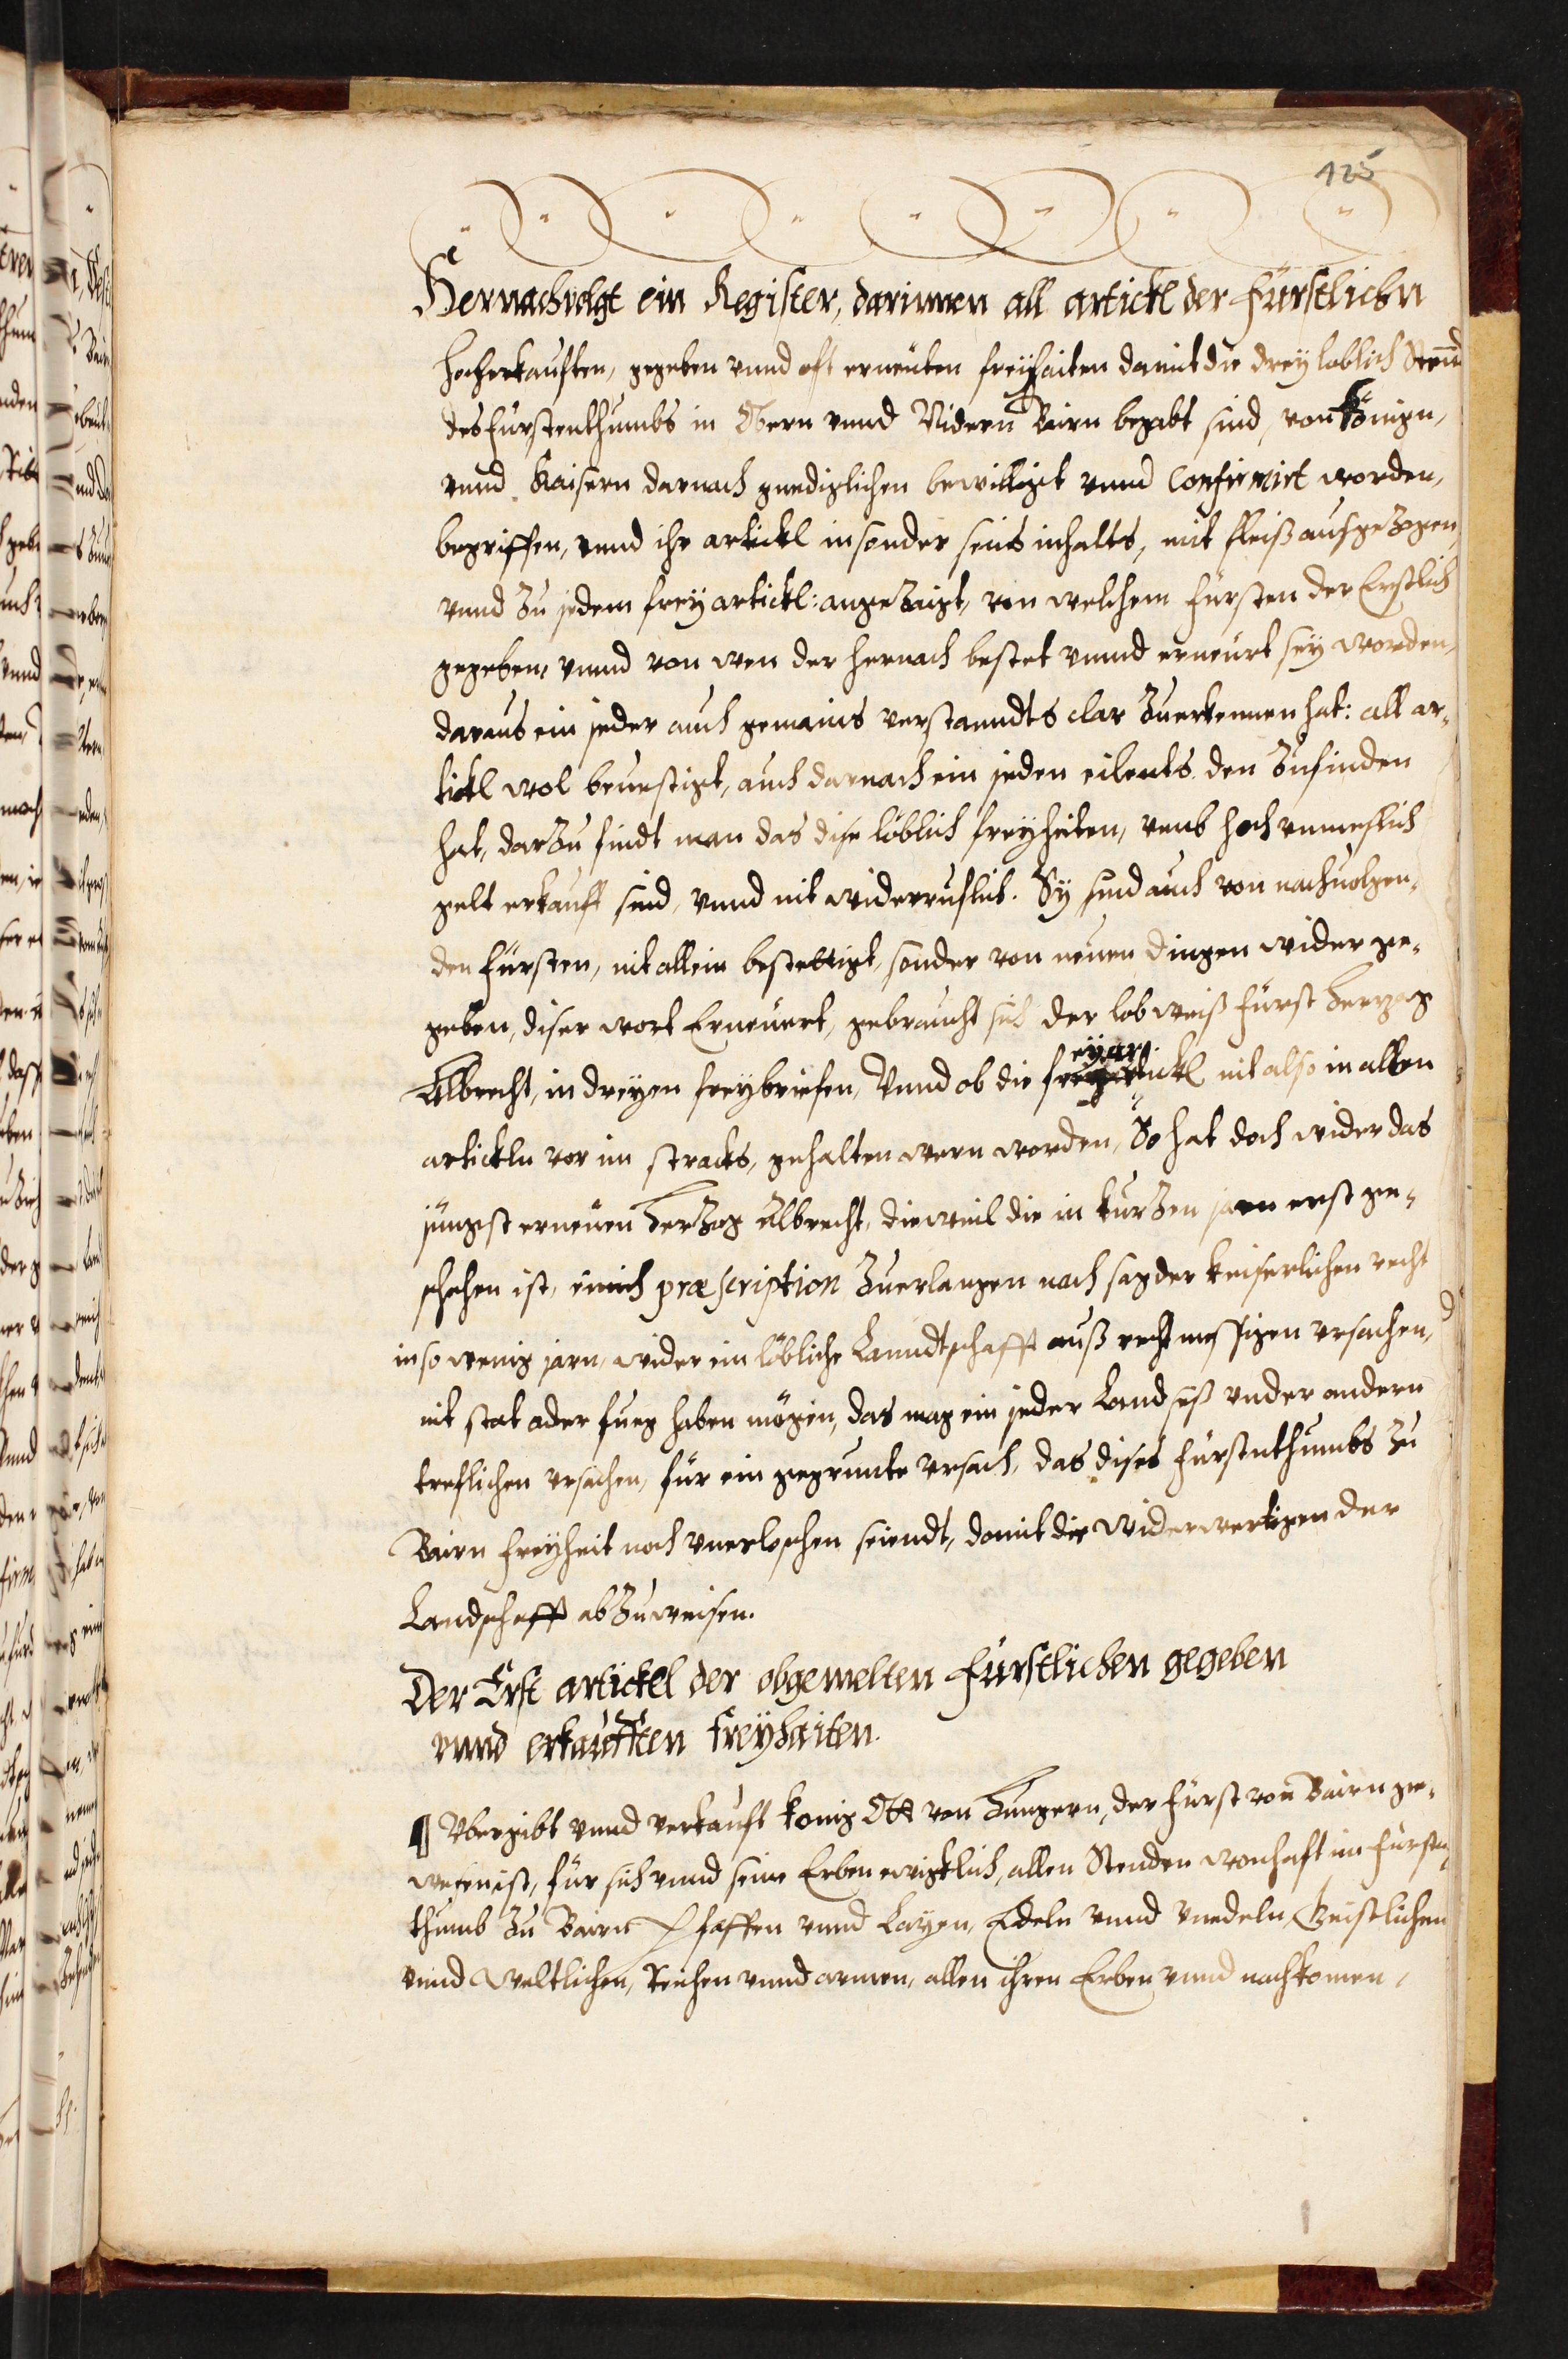 125
Hernachuolgt ein Register, darinnen all artickl der Fürstlichn
hocherkaufften, gegeben vnnd oft erneuten freyhaiten damit die drey loblich Stennd
des Fürstenthumbs in Obern vnnd Nidern Bairn begabt sind, von Könign,
vnnd Kaisern darnach gnediglichen bewilligt vnnd Confirmirt worden,
begriffen, vnnd ihr artickl insonder seins inhalts, mit fleiß ausgezogen,
vnnd zu jedem frey artickl: angezaigt, von welchem Fürsten der Erstlich
gegeben, vnnd von wen der hernach bestet vnnd erneurt sey worden,
daraus ein jeder auch gemains verstanndts clar zuerkennen hat: all ar-
tickl wol beuestigt, auch darnach ein jeden eilents den zufinden
hat, darzu findt man das dise löblich freyheiten, vmb hoch vnmeslich
gelt erkaufft sind, vnnd nit widerruflich. Sy sind auch von nachuolgen-
den Fürsten, nit allein bestettigt, sonder von neuen dingen wider ge-
geben, diser wort Erneuert, gebraucht sich der lob weiß Fürst Herzog
Albrecht, in dreyen freybriefen, Vnnd ob die freyartickl nit also in allen
artickln vor im stracks, gehalten wern worden, So hat doch wider das
jüngst erneuen Herzog Albrecht, dieweil die in kurzen jarn erst ge-
schehen ist, einich præscription zuerlangen nach sag der keiserlichen recht
in so wenig jarn, wider ein löbliche Lanndtschafft auß rechtmessigen vrsachen,
nit stat oder fueg haben mögen, das mag ein jeder Landseß vnder andern
treflichen vrsachen, für ein gegrunte vrsach, das dises Fürstnthumbs zu
Bairn freyheit noch vnerloschen seiendt, damit die widerwertigen der
Landschafft abzuweisen.
Der Erst artickel der obgemelten Fürstlichen gegeben
vnnd erkaufften freyhaiten.
¶ Vbergibt vnnd verkauft konig Ott von Hungern, der Fürst von Bairn ge-
wesen ist, für sich vnnd seine Erben ewigklich, allen Stenden wonhaft im Fürstn-
thumb zu Bairn Pfaffen vnnd Layen, Edeln vnnd vnedeln, Geistlichen
vnnd Weltlichen, Reichen vnnd armen, allen ihren Erben vnnd nachkomen,